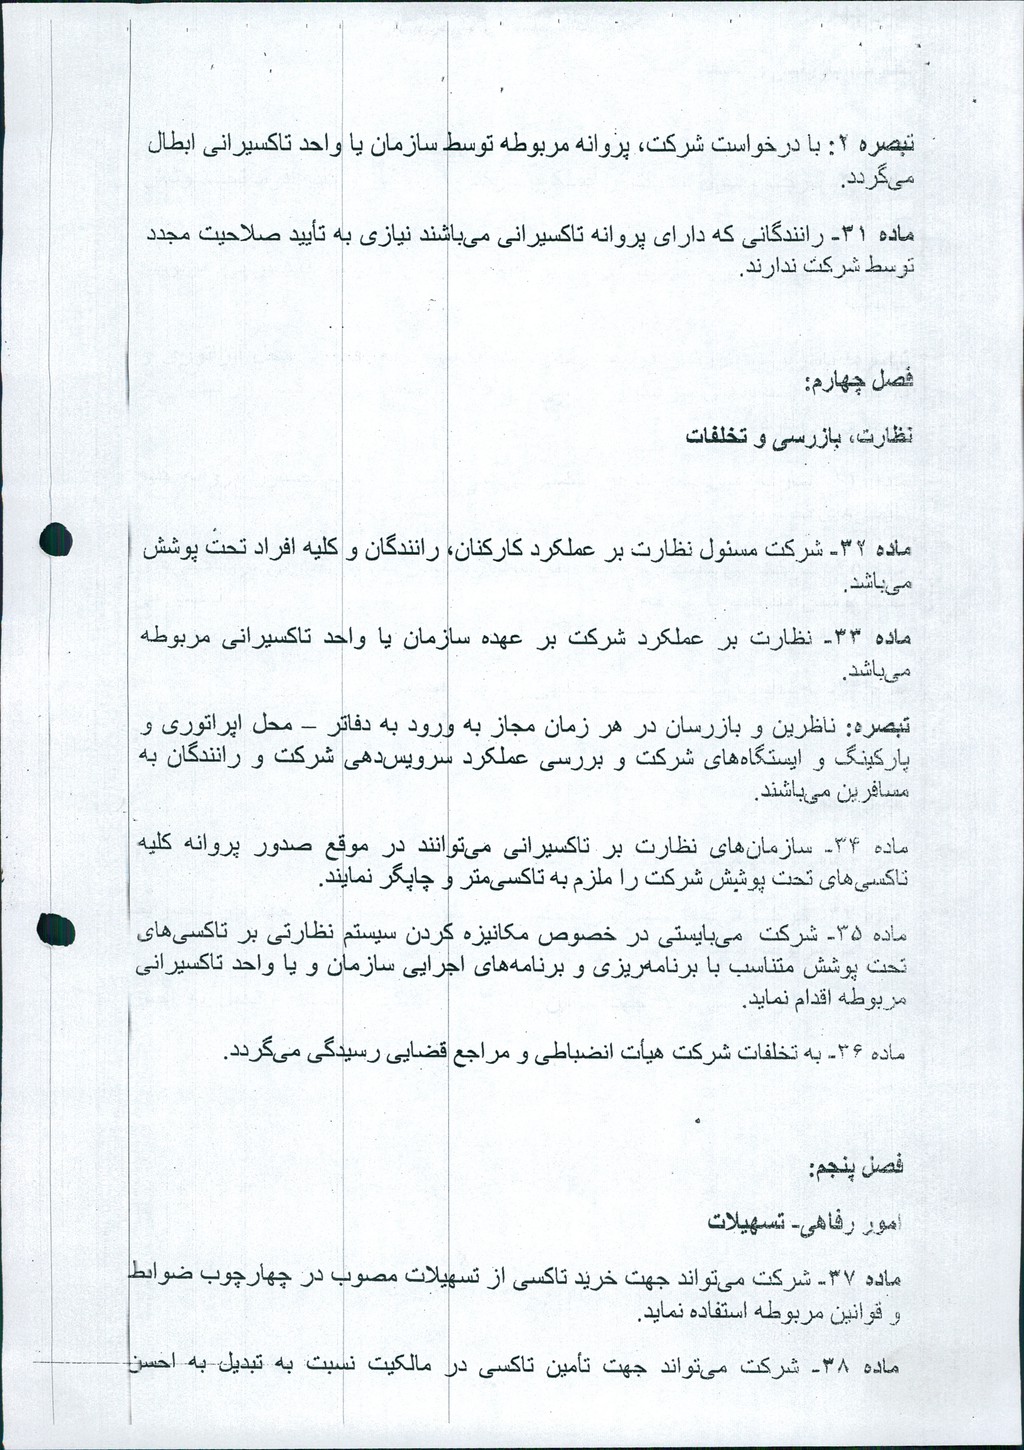 تبصره ۲: با درخواست شرکت، پروانه مربوطه توسط سازمان یا واحد تاکسیرانی ابطال
می‌گردد.
ماده ۳۱- رانندگانی که دارای پروانه تاکسیرانی می‌باشند نیازی به تأیید صلاحیت مجدد
توسط شرکت ندارند.
فصل چهارم:
نظارت، بازرسی و تخلفات
ماده ۳۲- شرکت مسئول نظارت بر عملکرد کارکنان، رانندگان و کلیه افراد تحت پوشش
می‌باشد.
ماده ۳۳- نظارت بر عملکرد شرکت بر عهده سازمان یا واحد تاکسیرانی مربوطه
می‌باشد.
تبصره: ناظرین و بازرسان در هر زمان مجاز به ورود به دفاتر – محل اپراتوری و
پارکینگ و ایستگاه‌های شرکت و بررسی عملکرد سرویس‌دهی شرکت و رانندگان به
مسافرین می‌باشند.
ماده ۳۴- سازمان‌های نظارت بر تاکسیرانی می‌توانند در موقع صدور پروانه کلیه
تاکسی‌های تحت پوشش شرکت را ملزم به تاکسی‌متر و چاپگر نمایند.
ماده ۳۵- شرکت می‌بایستی در خصوص مکانیزه کردن سیستم نظارتی بر تاکسی‌های
تحت پوشش متناسب با برنامه‌ریزی و برنامه‌های اجرایی سازمان و یا واحد تاکسیرانی
مربوطه اقدام نماید.
ماده ۳۶- به تخلفات شرکت هیأت انضباطی و مراجع قضایی رسیدگی می‌گردد.
فصل پنجم:
امور رفاهی- تسهیلات
ماده ۳۷- شرکت می‌تواند جهت خرید تاکسی از تسهیلات مصوب در چهارچوب ضوابط
و قوانین مربوطه استفاده نماید.
ماده ۳۸- شرکت می‌تواند جهت تأمین تاکسی در مالکیت نسبت به تبدیل به احسن